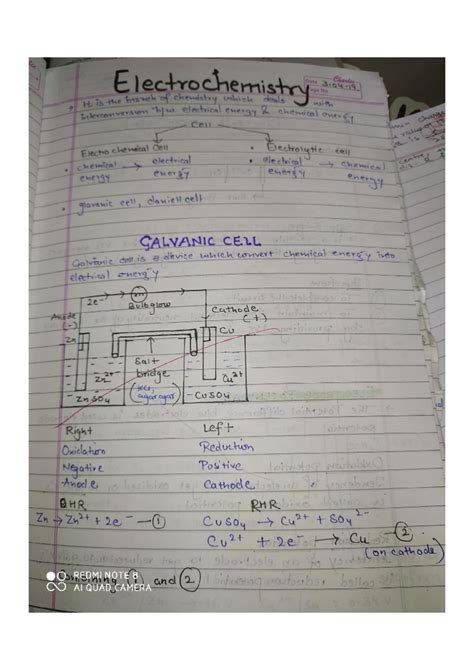 Electrochemistry
Date 3-04-19
• It is the branch of chemistry which deals with
interconversion b/w electrical energy & chemical energy
Cell
Electrochemical Cell
• Electrolytic cell
• chemical energy → electrical energy
• electrical energy → chemical energy
• galvanic cell, daniell cell
GALVANIC CELL
Galvanic cell is a device which convert chemical energy into
electrical energy
2e⁻
Bulb glow
Anode (-)
Cathode (+)
Zn
Cu
Salt bridge
Zn²⁺
Cu²⁺
agar agar
ZnSO₄
CuSO₄
Right Left
Oxidation Reduction
Negative Positive
Anode Cathode
RHR
Zn → Zn²⁺ + 2e⁻ — ①
CuSO₄ → Cu²⁺ + SO₄²⁻
Cu²⁺ + 2e⁻ → Cu ②
(on cathode)
① and ②
REDMI NOTE 8
AI QUAD CAMERA